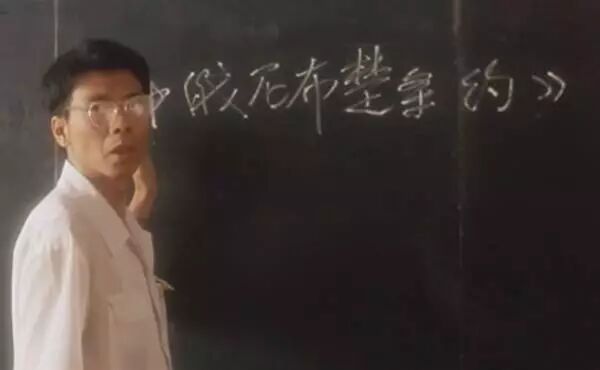 中俄尼布楚条约》